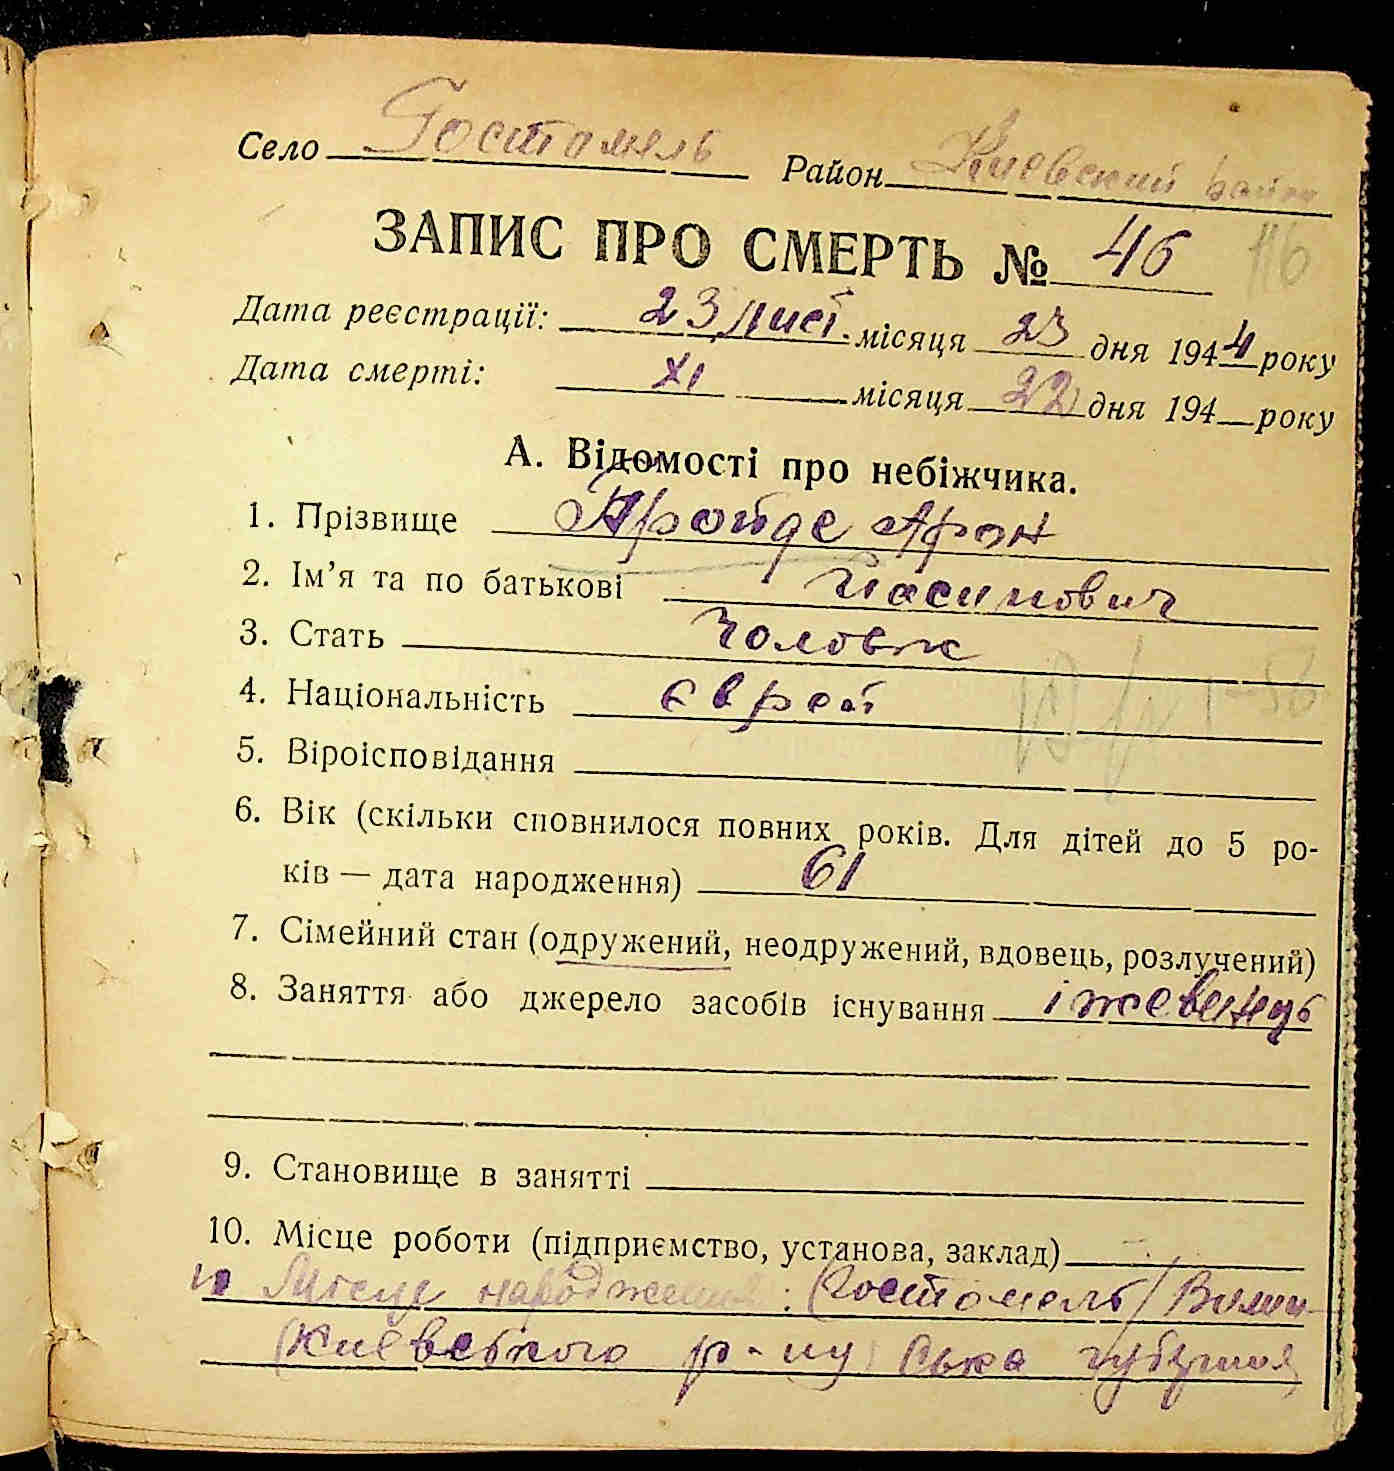 Село Гостомель Район Киевский район
ЗАПИС ПРО СМЕРТЬ № 46 116
Дата реєстрації: 23 лист. місяця 23 дня 1944 року
Дата смерті: XI місяця 22 дня 194 року
А. Відомості про небіжчика.
1. Прізвище Аройде Арон
2. Ім'я та по батькові
3. Стать Чоловік
4. Національність єврей
5. Віроісповідання
6. Вік (скільки сповнилося повних років. Для дітей до 5 ро-
ків — дата народження) 61
7. Сімейний стан (одружений, неодружений, вдовець, розлучений)
8. Заняття або джерело засобів існування
9. Становище в занятті
10. Місце роботи (підприємство, установа, заклад)
Місце народження: (Гостомель) Волин
(Киевского р-ну) ська губерния